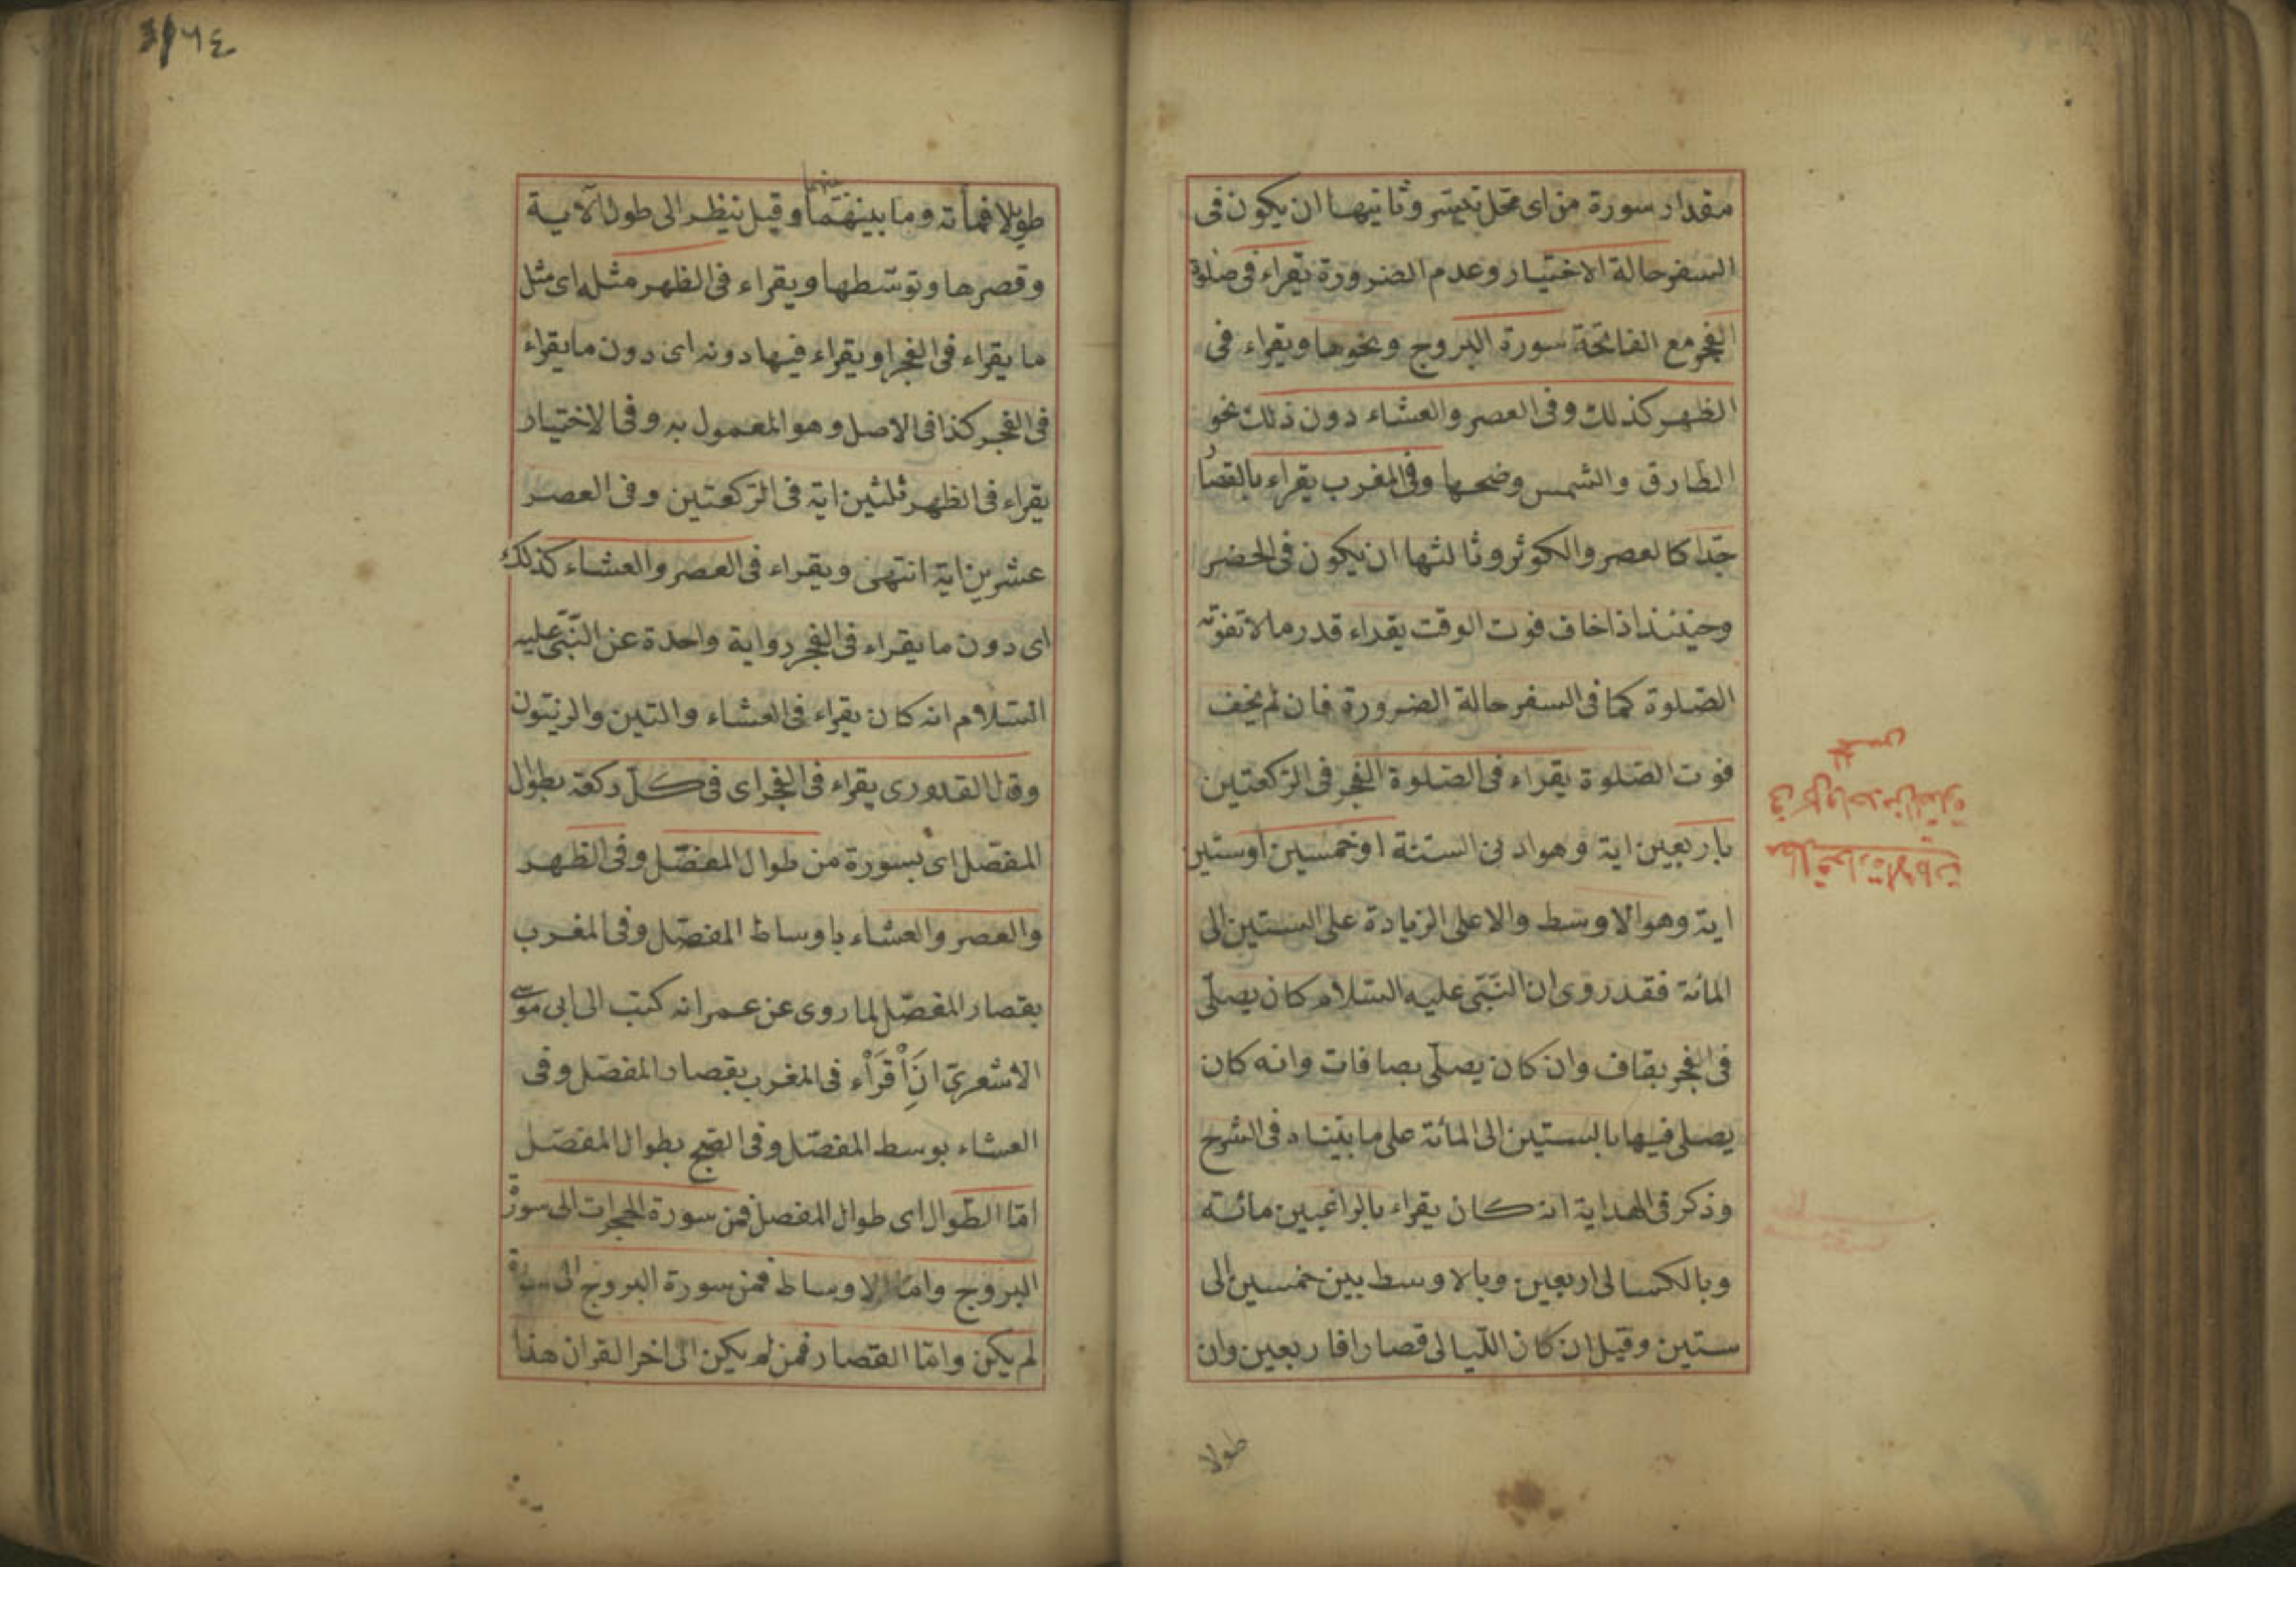 مقدار سورة من اى محل تيسر وثانيها ان يكون فى
السفر حالة الاختيار وعدم الضرورة يقراء فى صلوة
الفجر مع الفاتحة سورة البروج ونحوها ويقراء فى
الظهر كذلك وفى العصر والعشاء دون ذلك نحو
الطارق والشمس وضحيها وفى المغرب يقراء بالقصار
جدا كالعصر والكوثر وثالثها ان يكون فى الحضر
وحينئذ اذا خاف فوت الوقت يقراء قدر ما لا تفوته
الصلوة كما فى السفر حالة الضرورة فان لم يخف
فوت الصلوة يقراء فى الصلوة الفجر فى الركعتين
باربعين اية وهو ادنى السنة او خمسين او ستين
اية وهو الاوسط والاعلى الزيادة على الستين الى
المائة فقد روى ان النبى عليه السلام كان يصلى
فى الفجر بقاف وان كان يصلى بصافات وانه كان
يصلى فيها بالستين الى المائة على ما بيناه فى الشرح
وذكر فى الهداية انه كان يقراء بالراغبين مائة
وبالكسالى اربعين وبالاوسط بين خمسين الى
ستين وقيل ان كان الليالى قصارا فاربعين وان
طولا
٦٤
طويلا فمائة وما بينهما وقيل ينظر الى طول الآية
وقصرها وتوسطها ويقراء فى الظهر مثله اى مثل
ما يقراء فى الفجر او يقراء فيها دونه اى دون ما يقراء
فى الفجر كذا فى الاصل وهو المعمول به وفى الاختيار
يقراء فى الظهر ثلثين اية فى الركعتين وفى العصر
عشرين اية انتهى ويقراء فى العصر والعشاء كذلك
اى دون ما يقراء فى الفجر رواية واحدة عن النبى عليه
السلام انه كان يقراء فى العشاء والتين والزيتون
وقال القدورى يقراء فى الفجر اى فى كل ركعة بطوال
المفصل اى بسورة من طوال المفصل وفى الظهر
والعصر والعشاء باوساط المفصل وفى المغرب
بقصار المفصل لما روى عن عمر انه كتب الى ابى موسى
الاشعرى انِ اَقْرَاْء فى المغرب بقصار المفصل وفى
العشاء بوسط المفصل وفى الصبح بطوال المفصل
امّا الطوال اى طوال المفصل فمن سورة الحجرات الى سورة
البروج وامّا الاوساط فمن سورة البروج الى سورة
لم يكن وامّا القصار فمن لم يكن الى اخر القران هذا